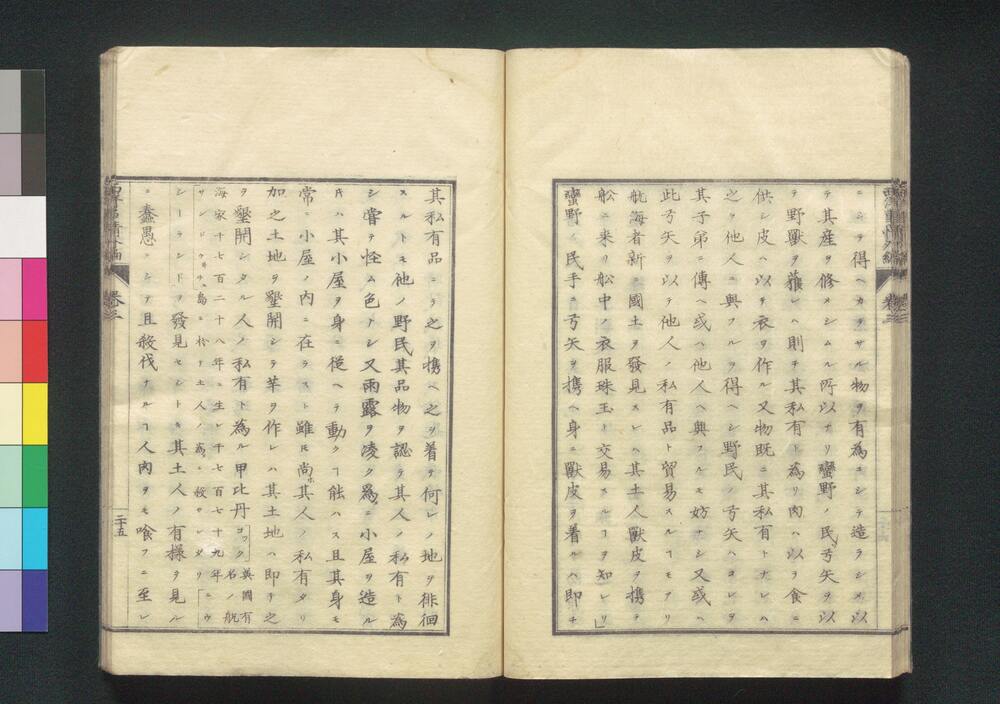 ニシテ得ヘカラサル物ヲ有為ニシテ造ラシメ以
テ其産ヲ修メシムル所以ナリ蠻野ノ民弓矢ヲ以
テ野獸ヲ獲レハ則チ其私有ト為リ肉ハ以テ食ニ
供シ皮ハ以テ衣ヲ作ル又物既ニ其私有トナレハ
之ヲ他人ニ與フルヲ得ヘシ野民ノ弓矢ハコレヲ
其子弟ニ傳ヘ或ハ他人ヘ與フルモ妨ナシ又或ハ
此弓矢ヲ以テ他人ノ私有品ト貿易スルヿモアリ
航海者新ニ國土ヲ發見スレハ其土人獸皮ヲ携テ
舩ニ来リ舩中ノ衣服珠玉ト交易スルヿヲ知レリ」
蠻野ノ民手ニ弓矢ヲ携ヘ身ニ獸皮ヲ着ルハ即チ
其私有品ニテ之ヲ携ヘ之ヲ着テ何レノ地ヲ徘徊
スルトモ他ノ野民其品物ヲ認テ其人ノ私有ト為
シ嘗テ怪ム色ナシ又雨露ヲ凌ク爲ニ小屋ヲ造ル
モ其小屋ヲ身ニ従ヘテ動クヿ能ハス且其身モ
常ニ小屋ノ内ニ在ラスト雖モ尚ホ其人ノ私有タリ
加之土地ヲ墾開シテ苹ヲ作レハ其土地ハ即チ之
ヲ墾開シタル人ノ私有ト為ル甲比丹コック英國有名ノ航
海家千七百二十八年ニ生レ千七百七十九年ニヲウ
サンドウヰチ島ニ於テ土人ノ為ニ殺サレタリ
シーラランドヲ發見セシトキ其土人ノ有樣ヲ見ル
ニ蠢愚ニシテ且殺伐ナルヿ人肉ヲモ喰フニ至レ
卷三
二十五